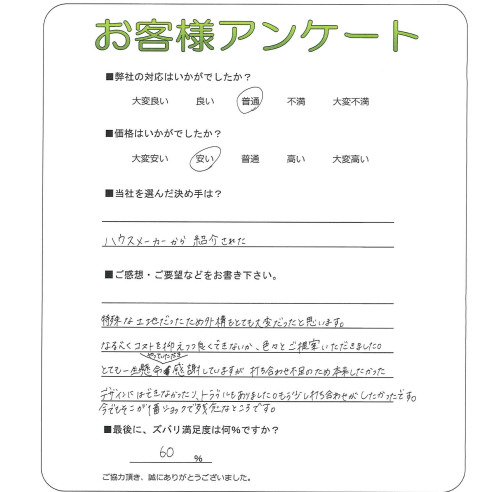 お客様アンケート
■弊社の対応はいかがでしたか？
大変良い 良い 普通 不満 大変不満
■価格はいかがでしたか？
大変安い 安い 普通 高い 大変高い
■当社を選んだ決め手は？
ハウスメーカーから紹介された
■ご感想・ご要望などをお書き下さい。
特殊な土地だったため外構もとても大変だったと思います。
なるべくコストを抑えつつ良くできないか、色々とご提案いただきました。
やっていただき
とても一生懸命 感謝していますが 打ち合わせ不足のため 本来したかった
デザインにはできなかったり、トラブルもありました。もう少し打ち合わせがしたかったです。
今でもそこが ショックで残念なところです。
■最後に、ズバリ満足度は何％ですか？
60 %
ご協力頂き、誠にありがとうございました。